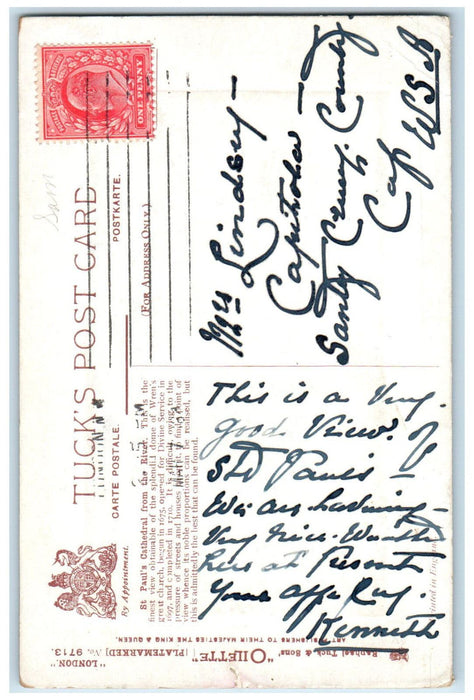 TUCK'S POST CARD
CARTE POSTALE.
POSTKARTE.
(FOR ADDRESS ONLY.)
ONE PENNY
By Appointment.
St Paul's Cathedral from the River. This is the
finest view obtainable of the splendid dome of Wren's
great church, begun in 1675, opened for Divine Service in
1697, and completed in 1710. It is difficult, owing to the
pressure of streets and houses round it, to find a point of
view whence its noble proportions can be realised, but
this is admittedly the best that can be found.
"LONDON"
"OILETTE" [PLATEMARKED] No. 9713.
Raphael Tuck & Sons'
ART PUBLISHERS TO THEIR MAJESTIES THE KING & QUEEN.
Printed in England
Sam
Mrs Lindsay –
Capitola –
Santa Cruz. County
Cal USA
This is a Very.
good View. of
St Pauls –
We are having –
Very nice. Weather
here at Present
Yours aff
Kenneth